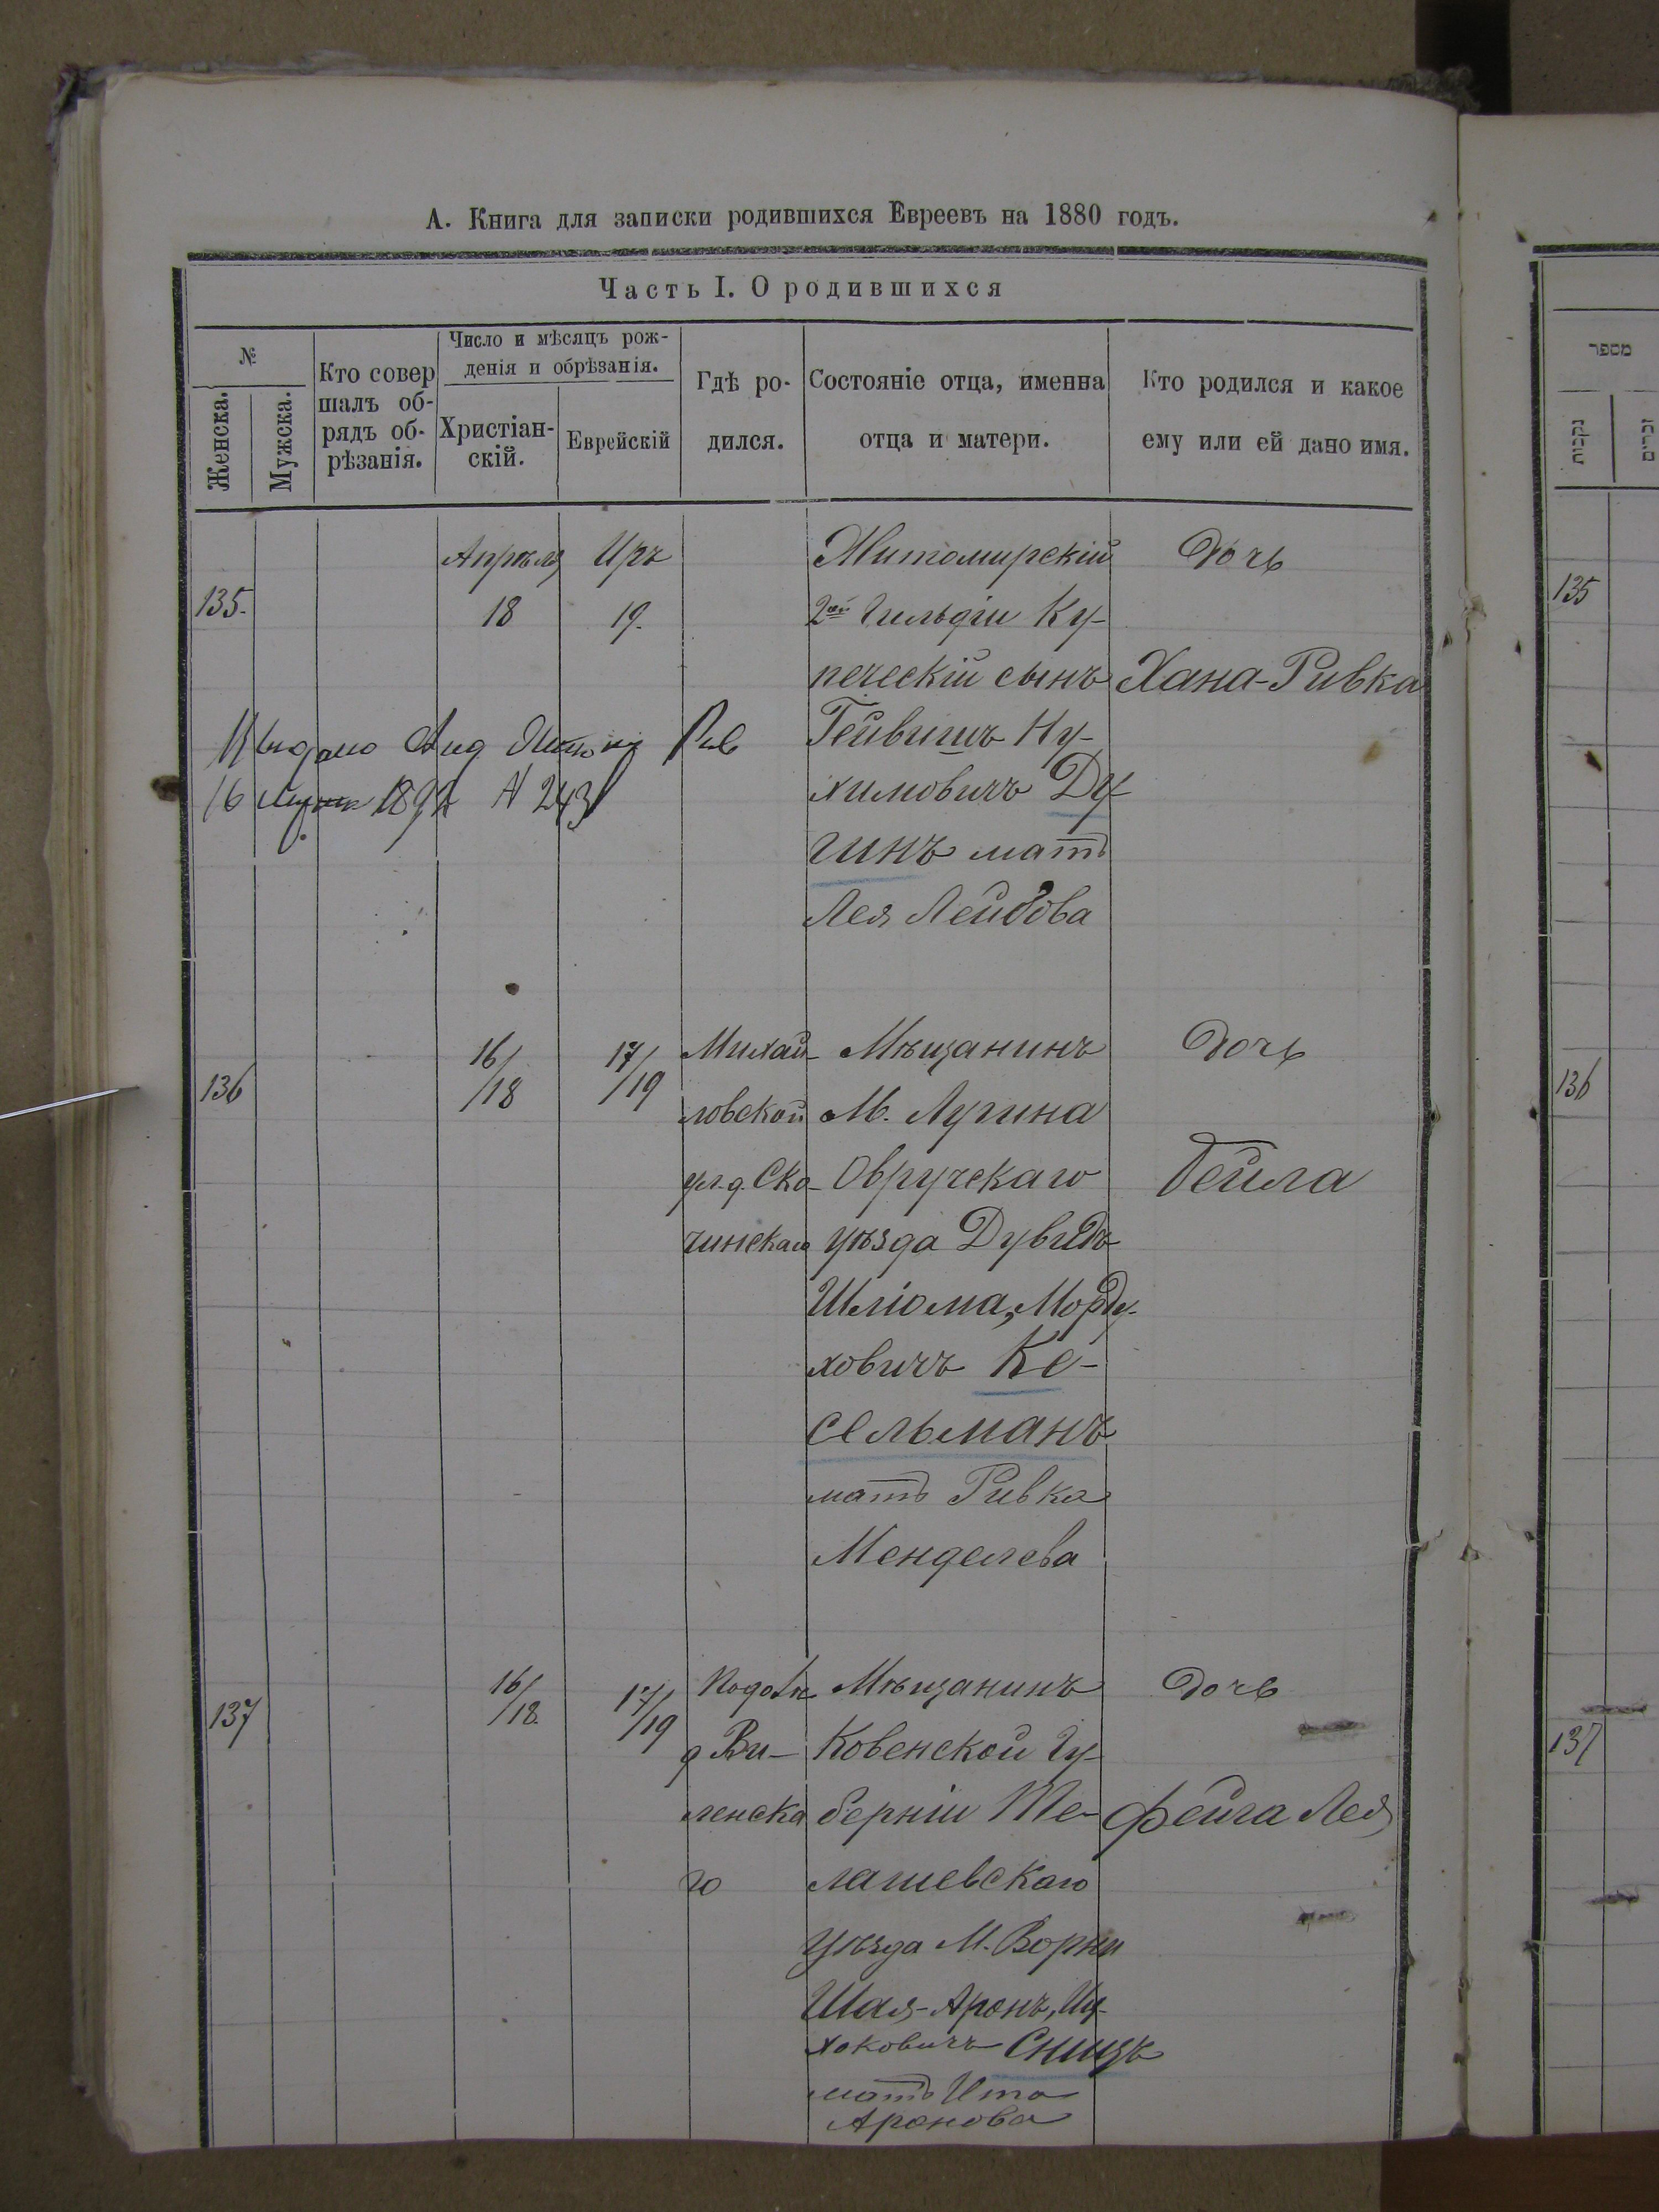 А. Книга для записки родившихся Евреевъ на 1880 годъ.
Часть I. О родившихся
№
Женска.
Мужска.
Кто совер
шалъ об-
рядъ об-
рѣзанія.
Число и мѣсяцъ рож-
денія и обрѣзанія.
Христіан-
скій.
Еврейскій
Гдѣ ро-
дился.
Состояніе отца, именна
отца и матери.
Кто родился и какое
ему или ей дано имя.
135.
Апрѣля
18
Иръ
19.
Житомирскій
2ой Гильдіи Ку-
печескій сынъ
Гейвишъ Ну-
химовичъ Ду
гинъ мать
Лея Лейбова
Дочь
Хана-Ривка
Выдано
16 1892 N 243
136
16/
/18
17/
/19
Михай-
ловской
ул. д. Ско-
чинскаго
Мѣщанинъ
М. Лугина
Овручскаго
уѣзда Дувидъ
Шліома, Морду-
ховичъ Ке-
сельманъ
мать Ривка
Менделева
Дочь
Бейла
137
16/
/18.
17/
/19
д Ви-
ленска
го
Мѣщанинъ
Ковенской Гу-
берніи Те-
лашевскаго
уѣзда М. Ворни
Шая-Аронъ, Иц-
хоковичъ Сницъ
мать Ита
Аронова
Дочь
Фейга Лея
מספר
נקבות
זכרים
135
136
137